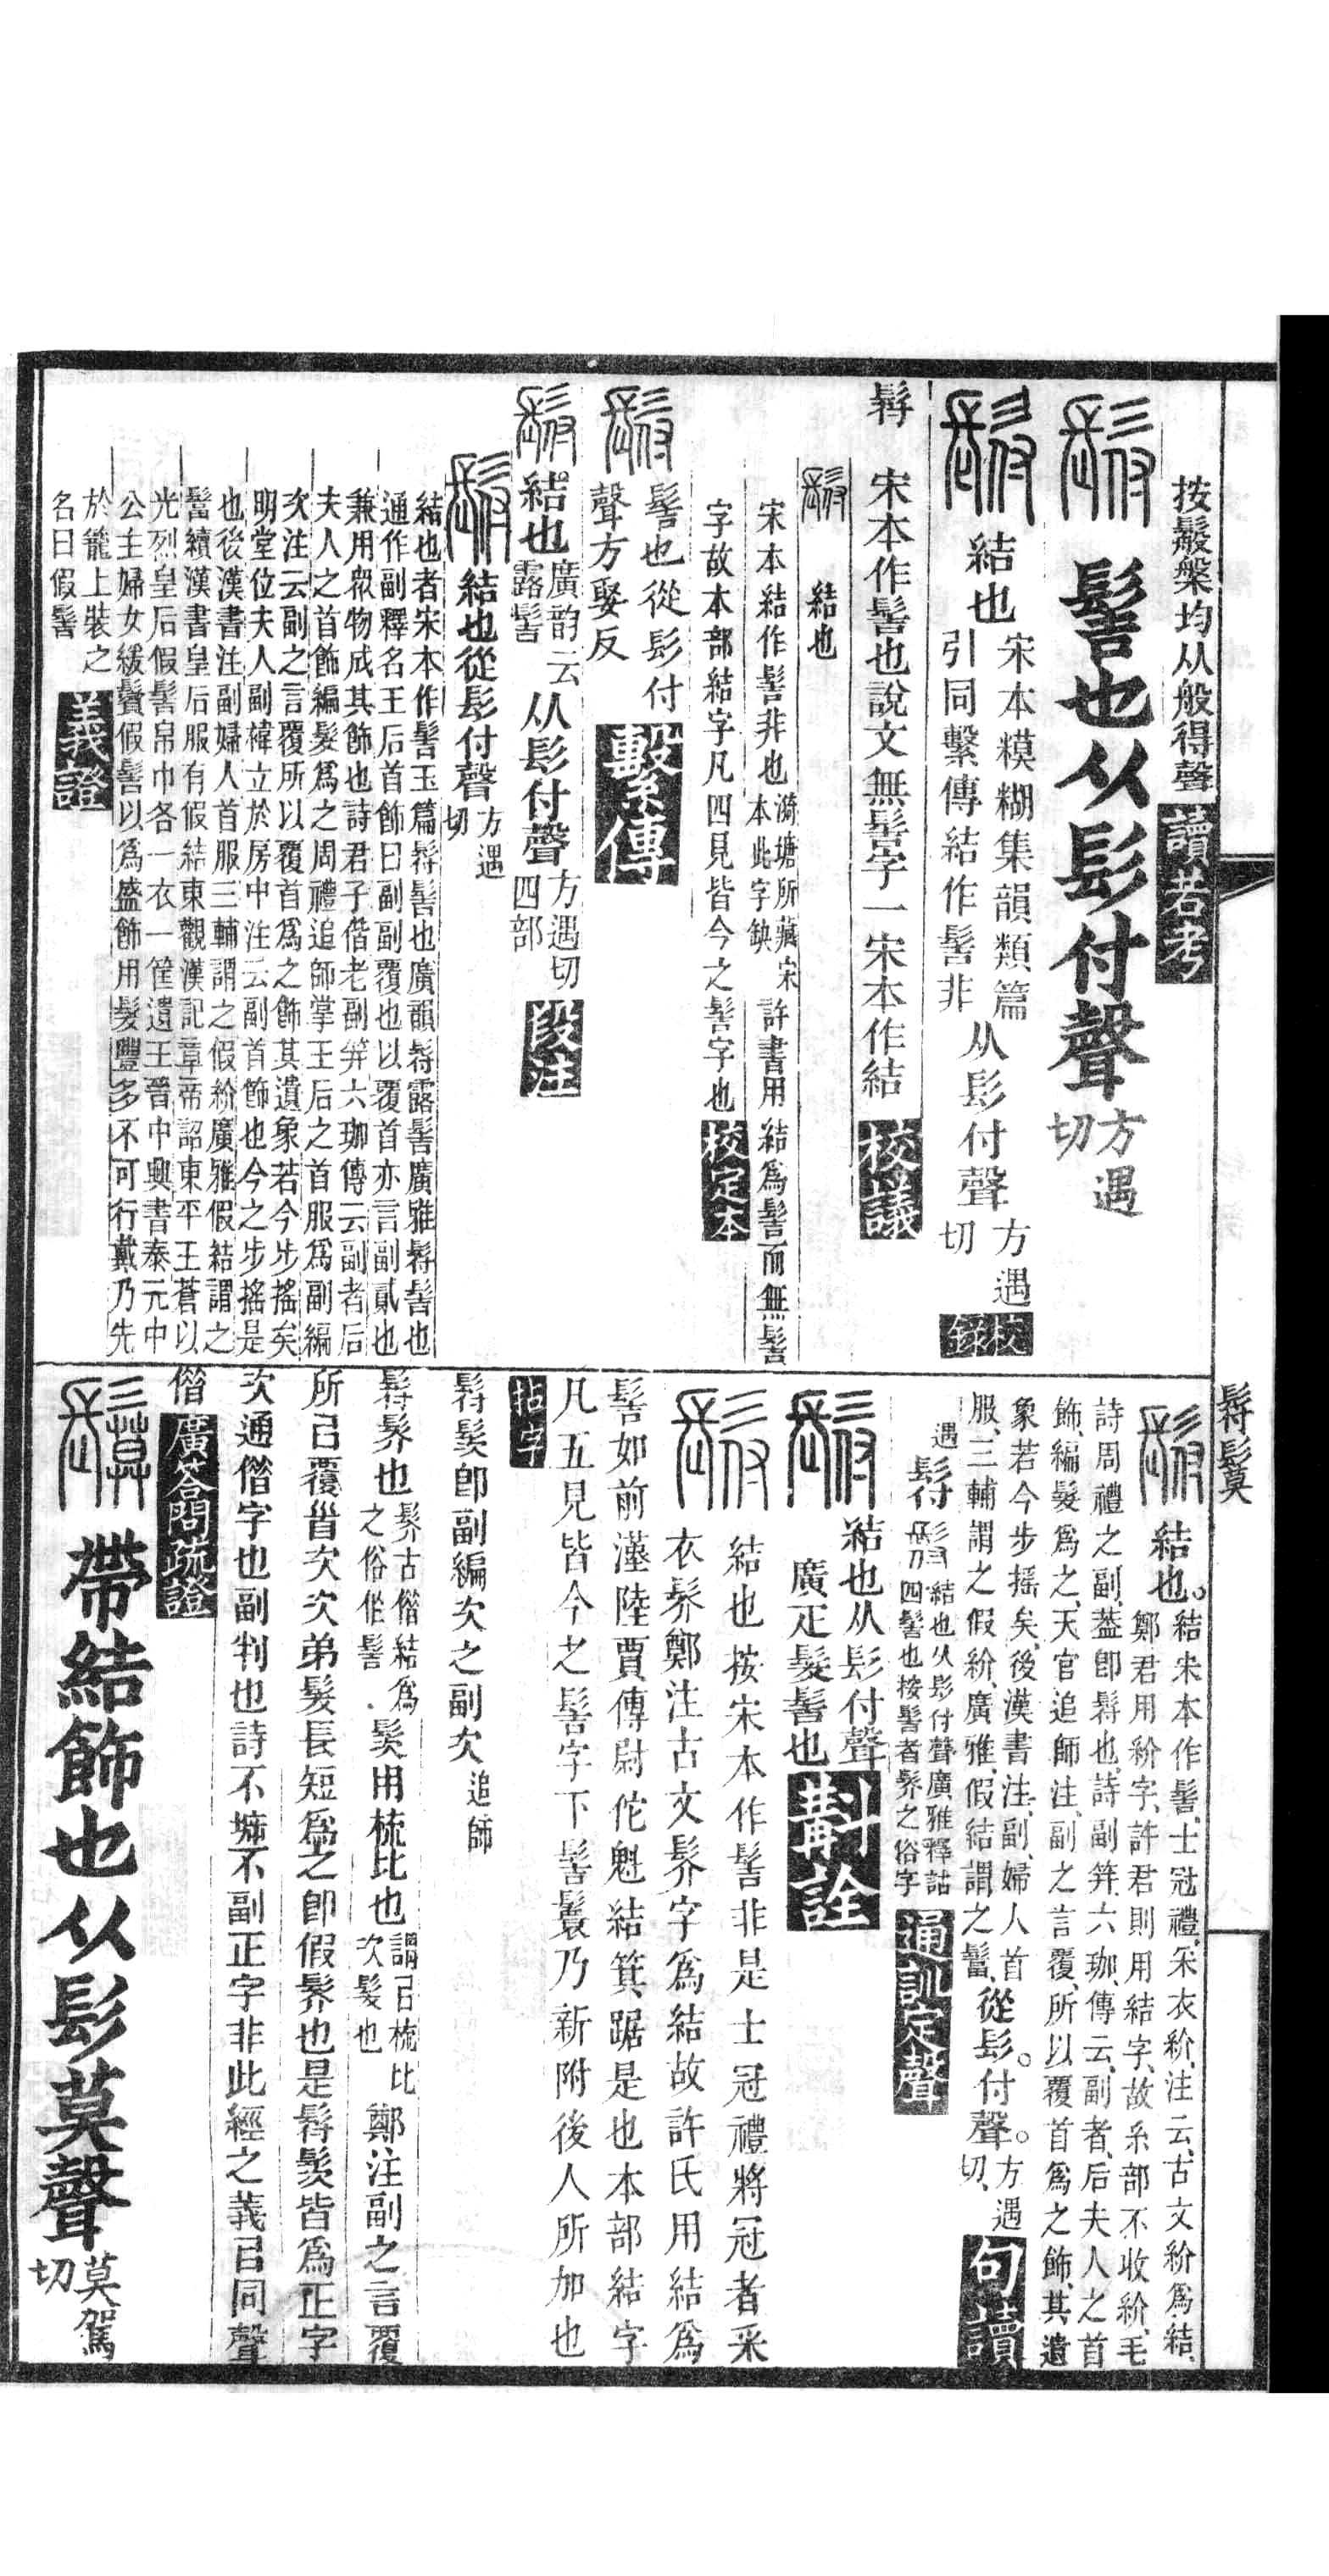 按鬆槃均从般得聲 讀若考
髻也从髟付聲 方遇切
結也 宋本糢糊集韻類篇引同繫傳結作髻非 从髟付聲 方遇切 校錄
髵 宋本作髻也說文無髻字一宋本作結 校議
結也
宋本結作髻非也 漪塘所藏宋本此字缺 許書用結爲髻而無髻
字故本部結字凡四見皆今之髻字也 校定本
髻也從髟付聲方娶反 繫傳
結也 廣韵云露髻 从髟付聲 方遇切四部 段注
結也從髟付聲 方遇切
結也者宋本作髻玉篇髵髻也廣韻髵露髻廣雅髵髻也
通作副釋名王后首飾曰副副覆也以覆首亦言副貳也
兼用衆物成其飾也詩君子偕老副笄六珈傳云副者后
夫人之首飾編髮爲之周禮追師掌王后之首服爲副編
次注云副之言覆所以覆首爲之飾其遺象若今步搖矣
明堂位夫人副褘立於房中注云副首飾也今之步搖是
也後漢書注副婦人首服三輔謂之假紒廣雅假結謂之
髻續漢書皇后服有假結東觀漢記章帝詔東平王蒼以
光烈皇后假髻帛巾各一衣一篋遺王晉中興書泰元中
公主婦女緩鬢假髻以爲盛飾用髮豐多不可行戴乃先
於籠上裝之名曰假髻 義證
髵髳
結也。結宋本作髻、士冠禮、采衣紒、注云、古文紒爲、結、
鄭君用紒字、許君則用結字、故糸部不收紒、毛
詩周禮之副、葢卽髵也、詩副笄、六珈、傳云、副者、后夫人之首
飾、編髮爲之、天官追師注、副之言覆、所以覆首爲之飾、其遺
象若今步搖矣、後漢書注、副、婦人首
服、三輔謂之假紒、廣雅、假結謂之䰂、從髟。付聲。方遇切、 句讀
髵 結也从髟付聲廣雅釋詁四髻也按髻者髤之俗字 通訓定聲
結也从髟付聲
廣疋髮髻也 斠詮
結也按宋本作髻非是士冠禮將冠者采
衣紒鄭注古文紒字爲結故許氏用結爲
髻如前漢陸賈傳尉佗魁結箕踞是也本部結字
凡五見皆今之髻字下髻鬟乃新附後人所加也
拈字
髵髲卽副編次之副次 追師
髵髤也 髤古偕結爲之俗作髻 髲用梳比也 謂㠯梳比次髮也 鄭注副之言覆
所㠯覆首次次弟髮長短爲之卽假紒也是髵髲皆爲正字
次通偕字也副判也詩不坼不副正字非此經之義㠯同聲
偕 廣荅問疏證
帶結飾也从髟莫聲 莫駕切